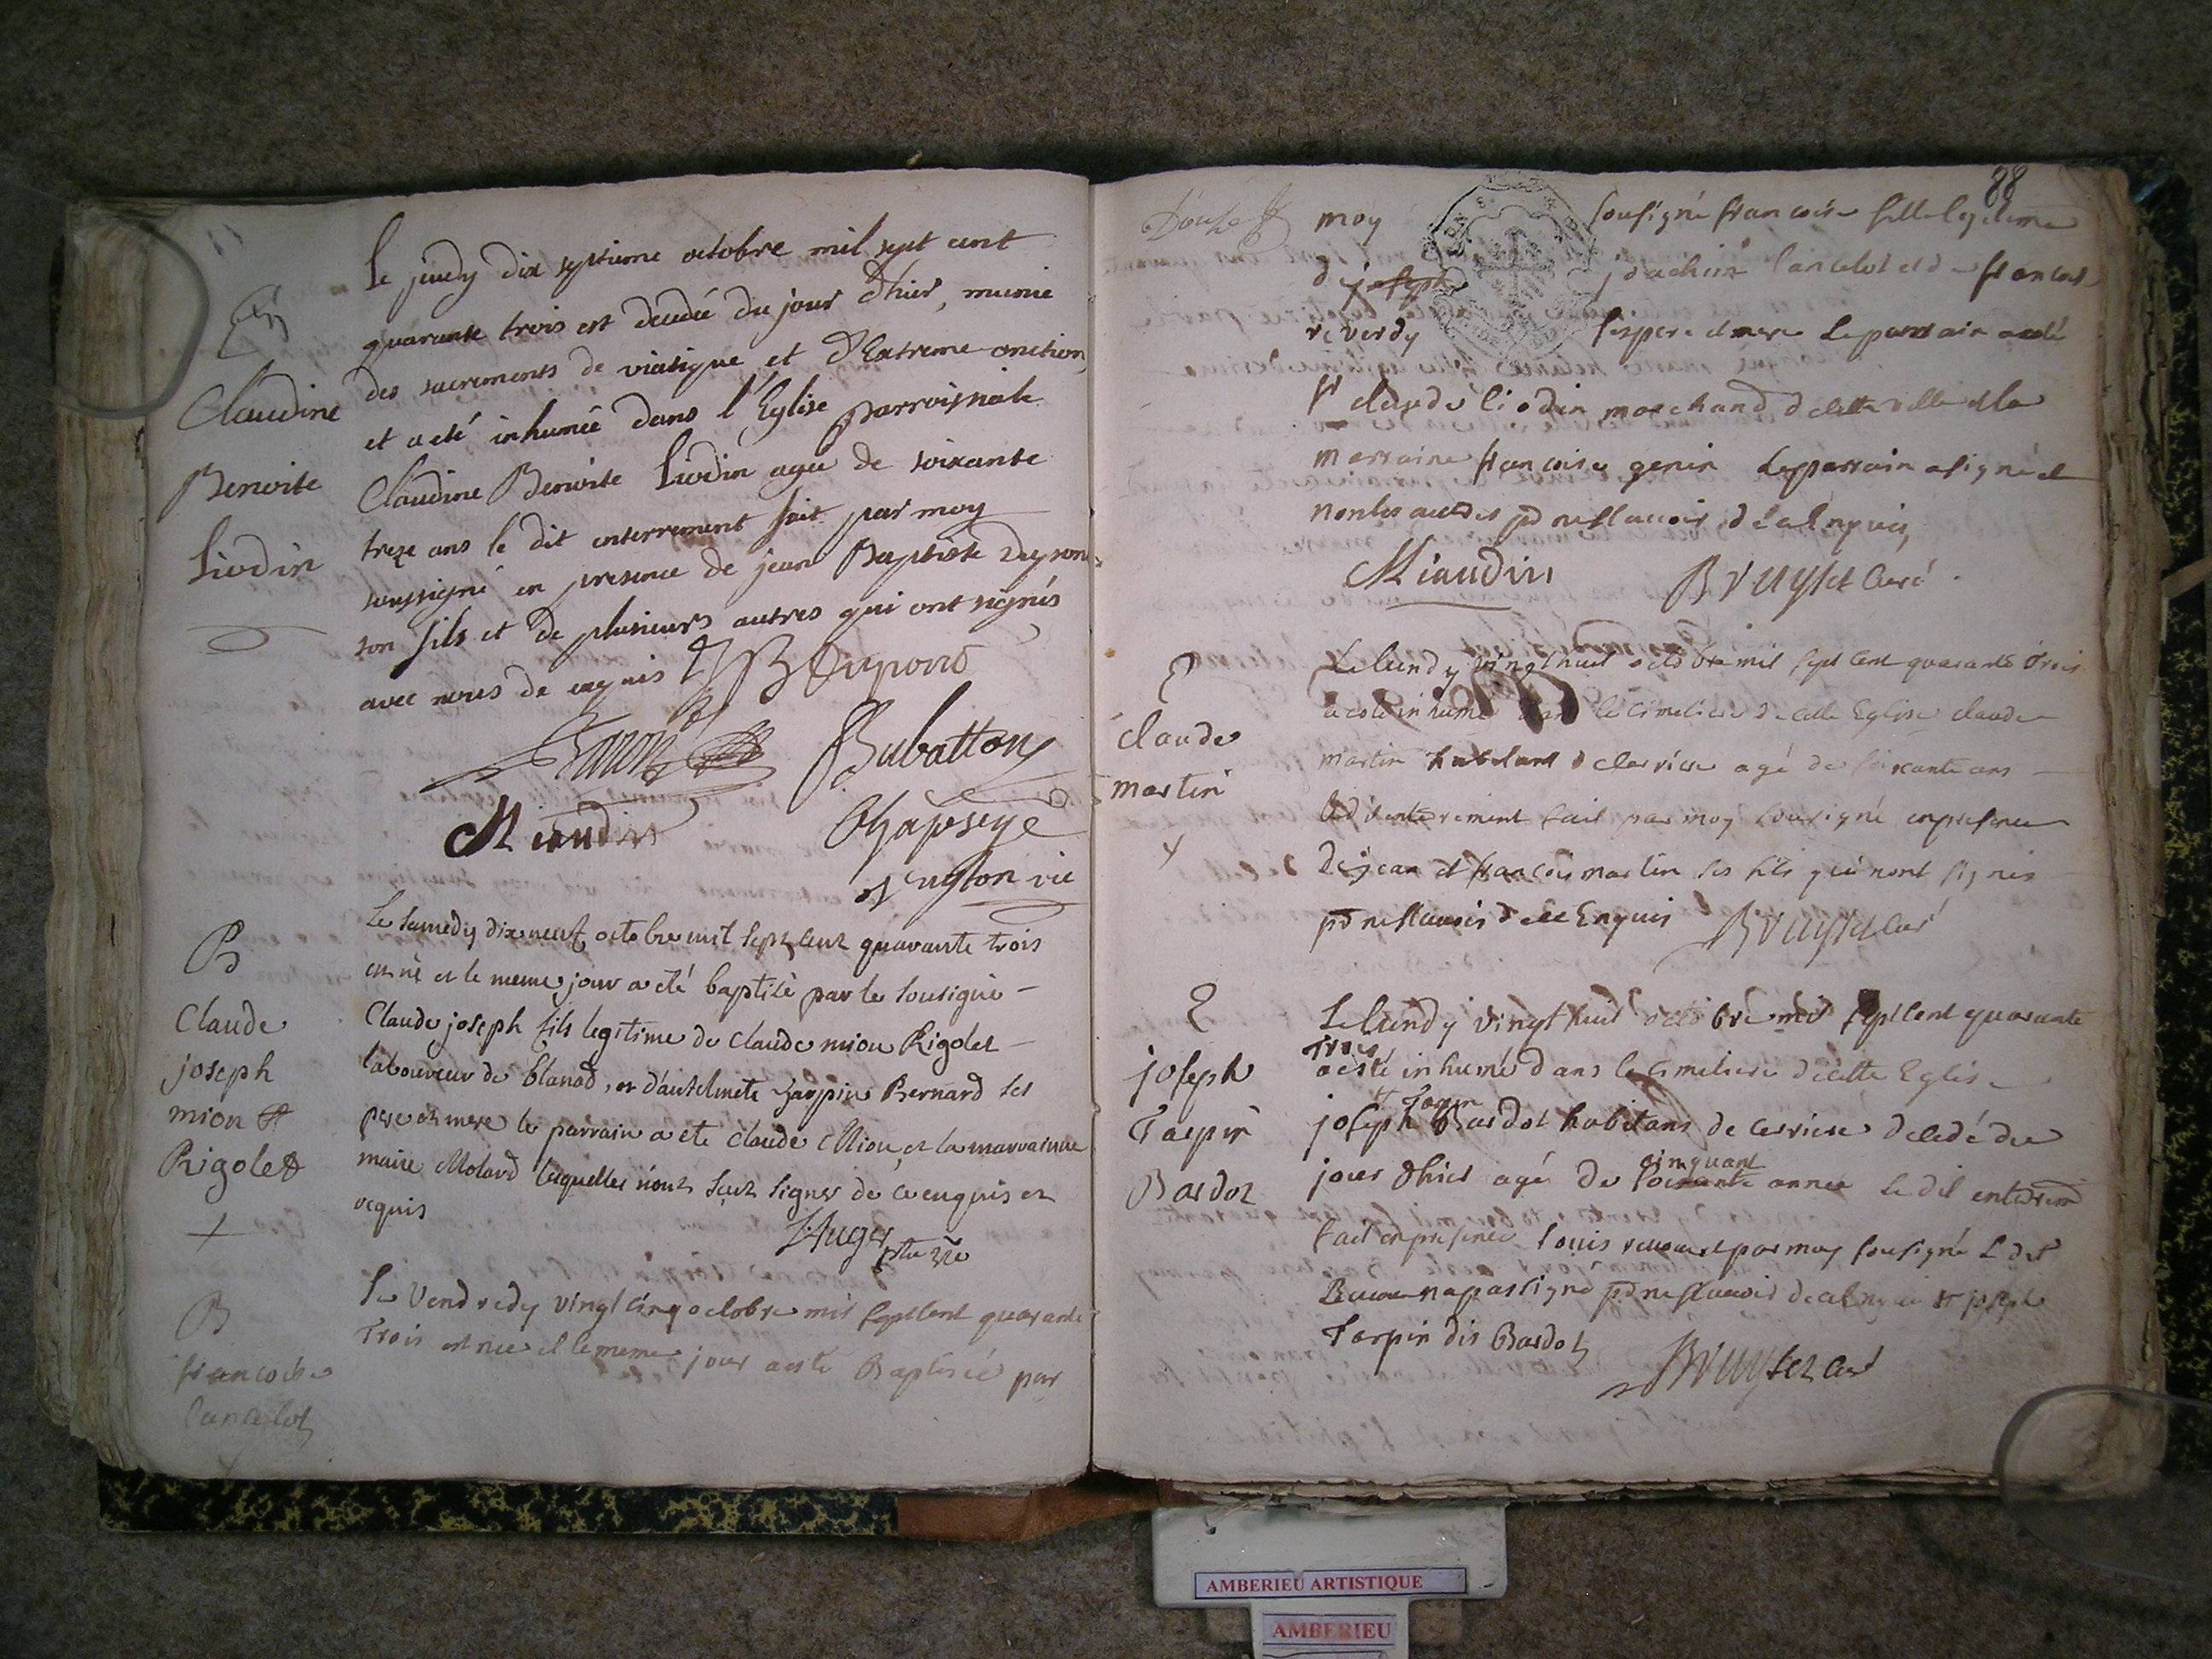 En
Claudine
Benoite
Liodin
le jeudy dix septieme octobre mil sept cent
quarante trois est decedée du jour d'hier, munie
des sacrements de viatique et d'Extreme-onction,
et a eté inhumée dans l'Eglise parroissiale
Claudine Benoite Liodin agée de soixante
treze ans le dit enterrement fait par moy
soussigné en presence de jean Baptiste
son fils et de plusieurs autres qui ont signés
avec nous de enquis
Babatton
Miaudin
vic
B
Claude
joseph
mion
Rigolet
Le Samedy dix neuf octobre mil sept cent quarante trois
est né et le meme jour a eté baptisé par le sousigné
Claude joseph fils legitime de Claude mion Rigolet
laboureur de blanad, et d'antelmete Bernard ses
pere et mere le parrain a ete Claude Mion, et la marrainne
marie Molard lesquelles n'ont sçus signer de ce enquis et
requis
Auger
B
francoise
lancelot
Le Vendredy vingt cinq octobre mil sept cent quarante
Trois est nee et le meme jour a esté Baptisée par
88
moy sousigné francoise fille legitime
d joseph joachim lancelot et de francoise
reverdy ses pere et mere Le parrain a esté
Sr claude liodin marchand de cette ville et la
marraine francoise genin Le parrain a signé et
non les autres pr ne scavoir de ce enquis
Miaudin Bruyset Curé
E
claude
martin
Le lundy vingt huit octobre mil sept cent quarante trois
a esté inhumé dans le cimetiere de cette Eglise claude
martin habitant de agé de soixante ans
led enterrement fait par moy sousigné en presence
de jean et francois martin ses fils qui nont signés
pr ne scavoir de ce Enquis Bruyset Curé
E
joseph
Tarpin
Bardot
Le lundy vingt huit octobre mil sept cent quarante
Trois
a esté inhumé dans le cimetiere de cette Eglise
Tarpin
joseph Bardot habitant de decedé du
cinquant
jour d'hier agé de soixante annee le dit enterrem
fait en presence louis par moy sousigné Ledit
n a pas signé pr ne scavoir de ce enquis
Tarpin dis Bardot
Bruyset Curé
AMBERIEU ARTISTIQUE
AMBERIEU